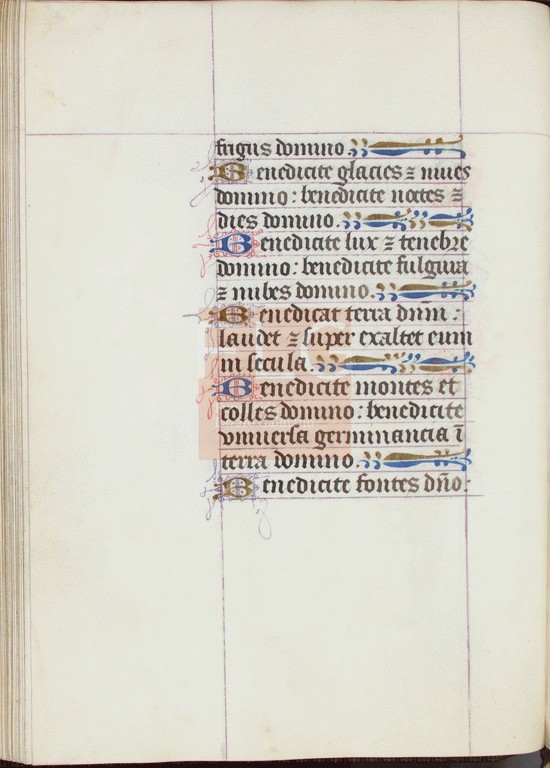 frigus domino.
Benedicite glacies ⁊ niues
domino: benedicite noctes ⁊
dies domino.
Benedicite lux ⁊ tenebre
domino: benedicite fulgura
⁊ nubes domino.
Benedicat terra dnm̄:
laudet ⁊ super exaltet eum
in secula.
Benedicite montes et
colles domino: benedicite
vniuersa germinancia ī
terra domino.
Benedicite fontes dn̄o: